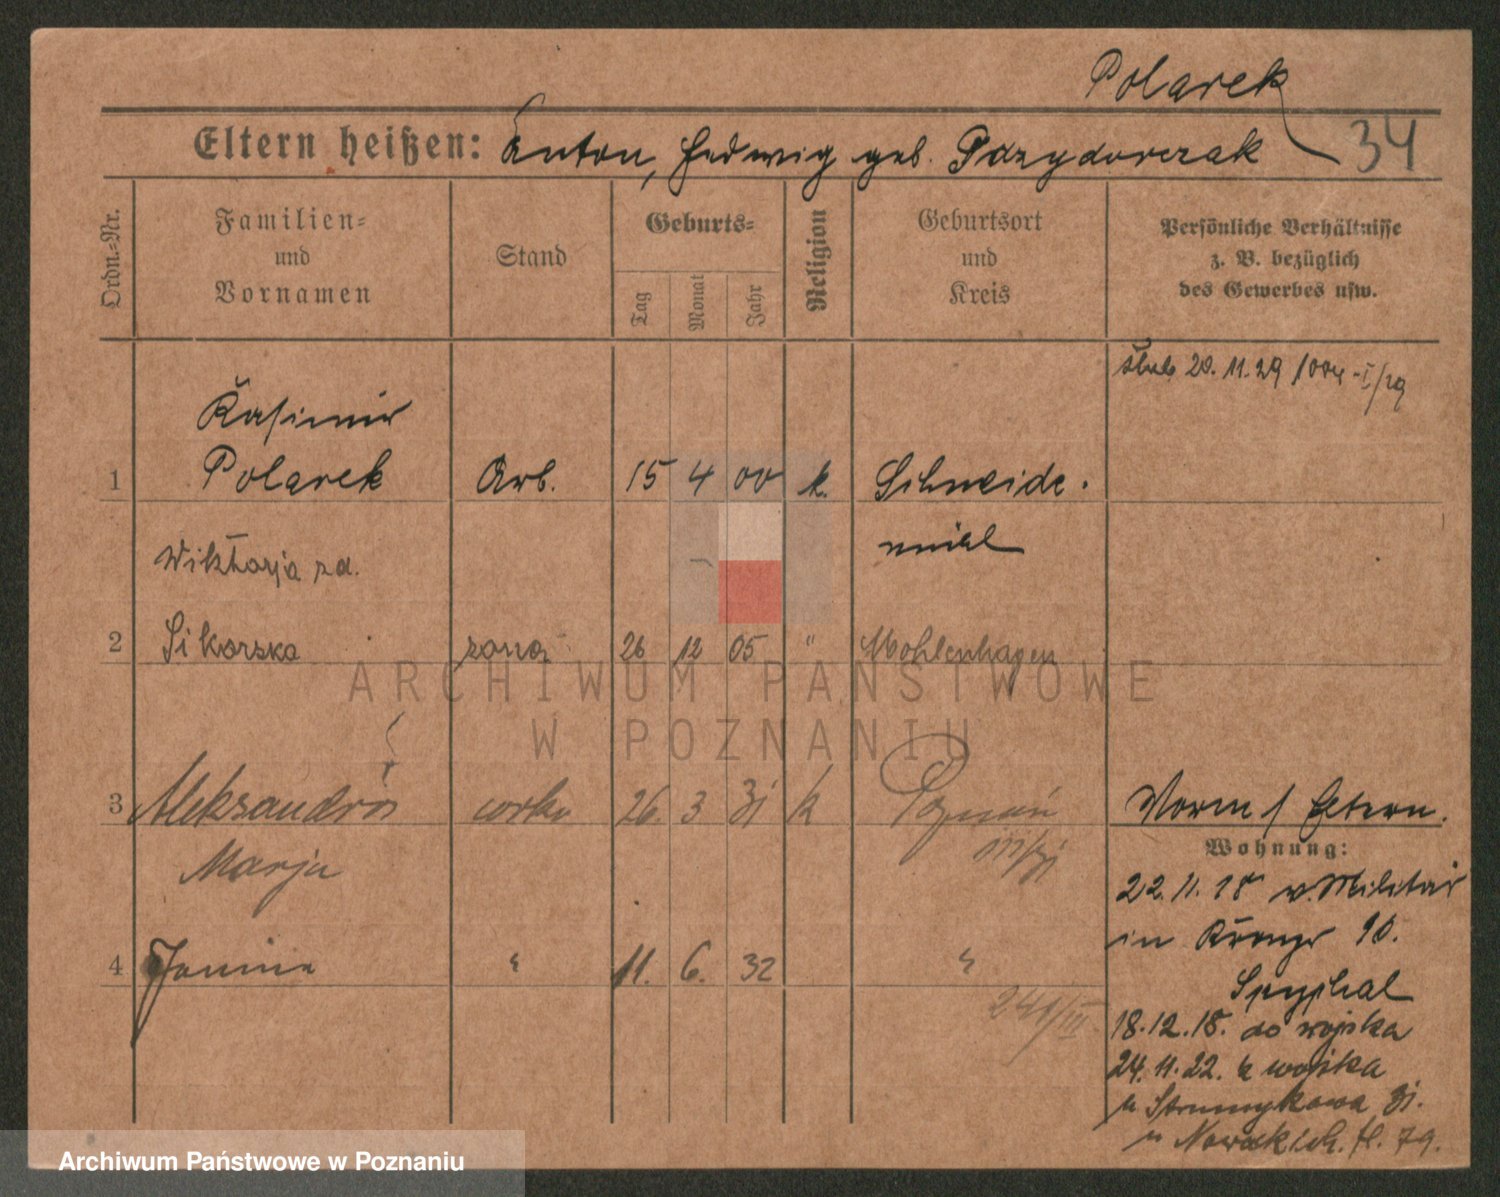 Polarek
Eltern heißen: Anton, Hedwig geb. Przydorczak 34
Ordn.-Nr.
Familien-
und
Vornamen
Stand
Geburts-
Tag
Monat
Jahr
Religion
Geburtsort
und
Kreis
Persönliche Verhältnisse
z. B. bezüglich
des Gewerbes usw.
ślub 20. 11. 29
Kasimir
1 Polarek Arb. 15 4 00 k. Schneide-
mühl
Wiktorja zd.
2 Sikorska żona 26 12 05 " Mohlenhagen
3 Aleksandra córka 26. 3 31 k Poznań
Marja
4 Janina " 11. 6. 32 "
241/III
Norm / Eltern.
Wohnung:
22. 11. 18 v. Militär
in 10.
18. 12. 18. do wojska
24. 11. 22. z wojska
u Strumykowa 31.
u 79.
ARCHIWUM PAŃSTWOWE
W POZNANIU
Archiwum Państwowe w Poznaniu